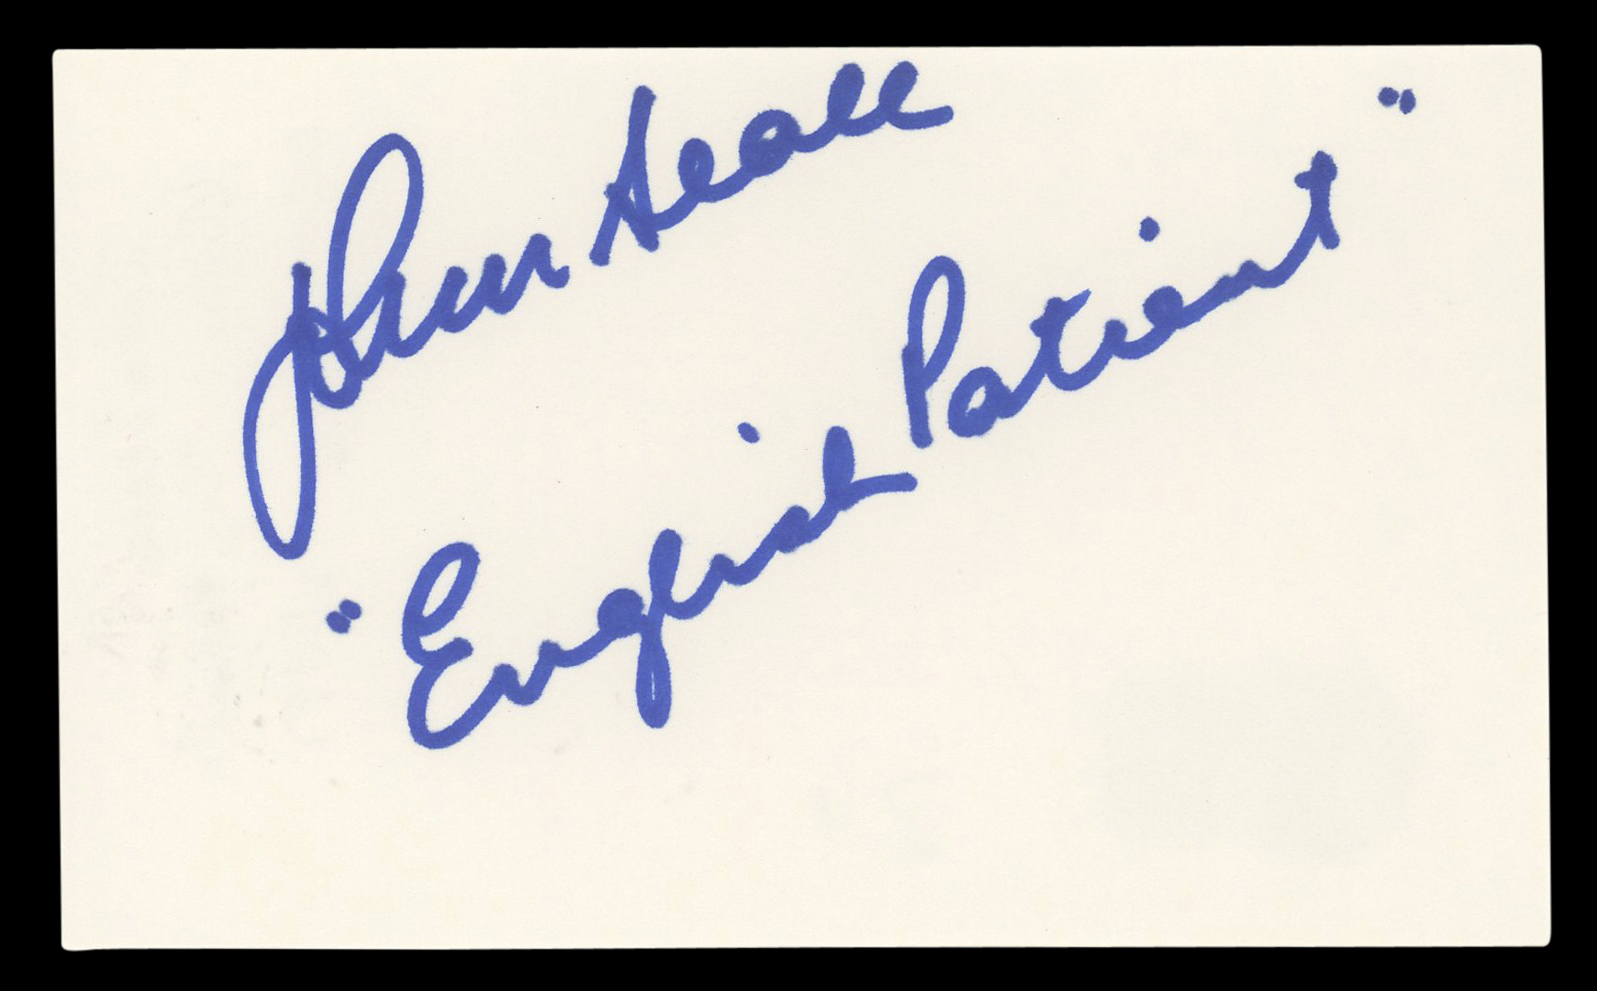 John Seale
"English Patient"